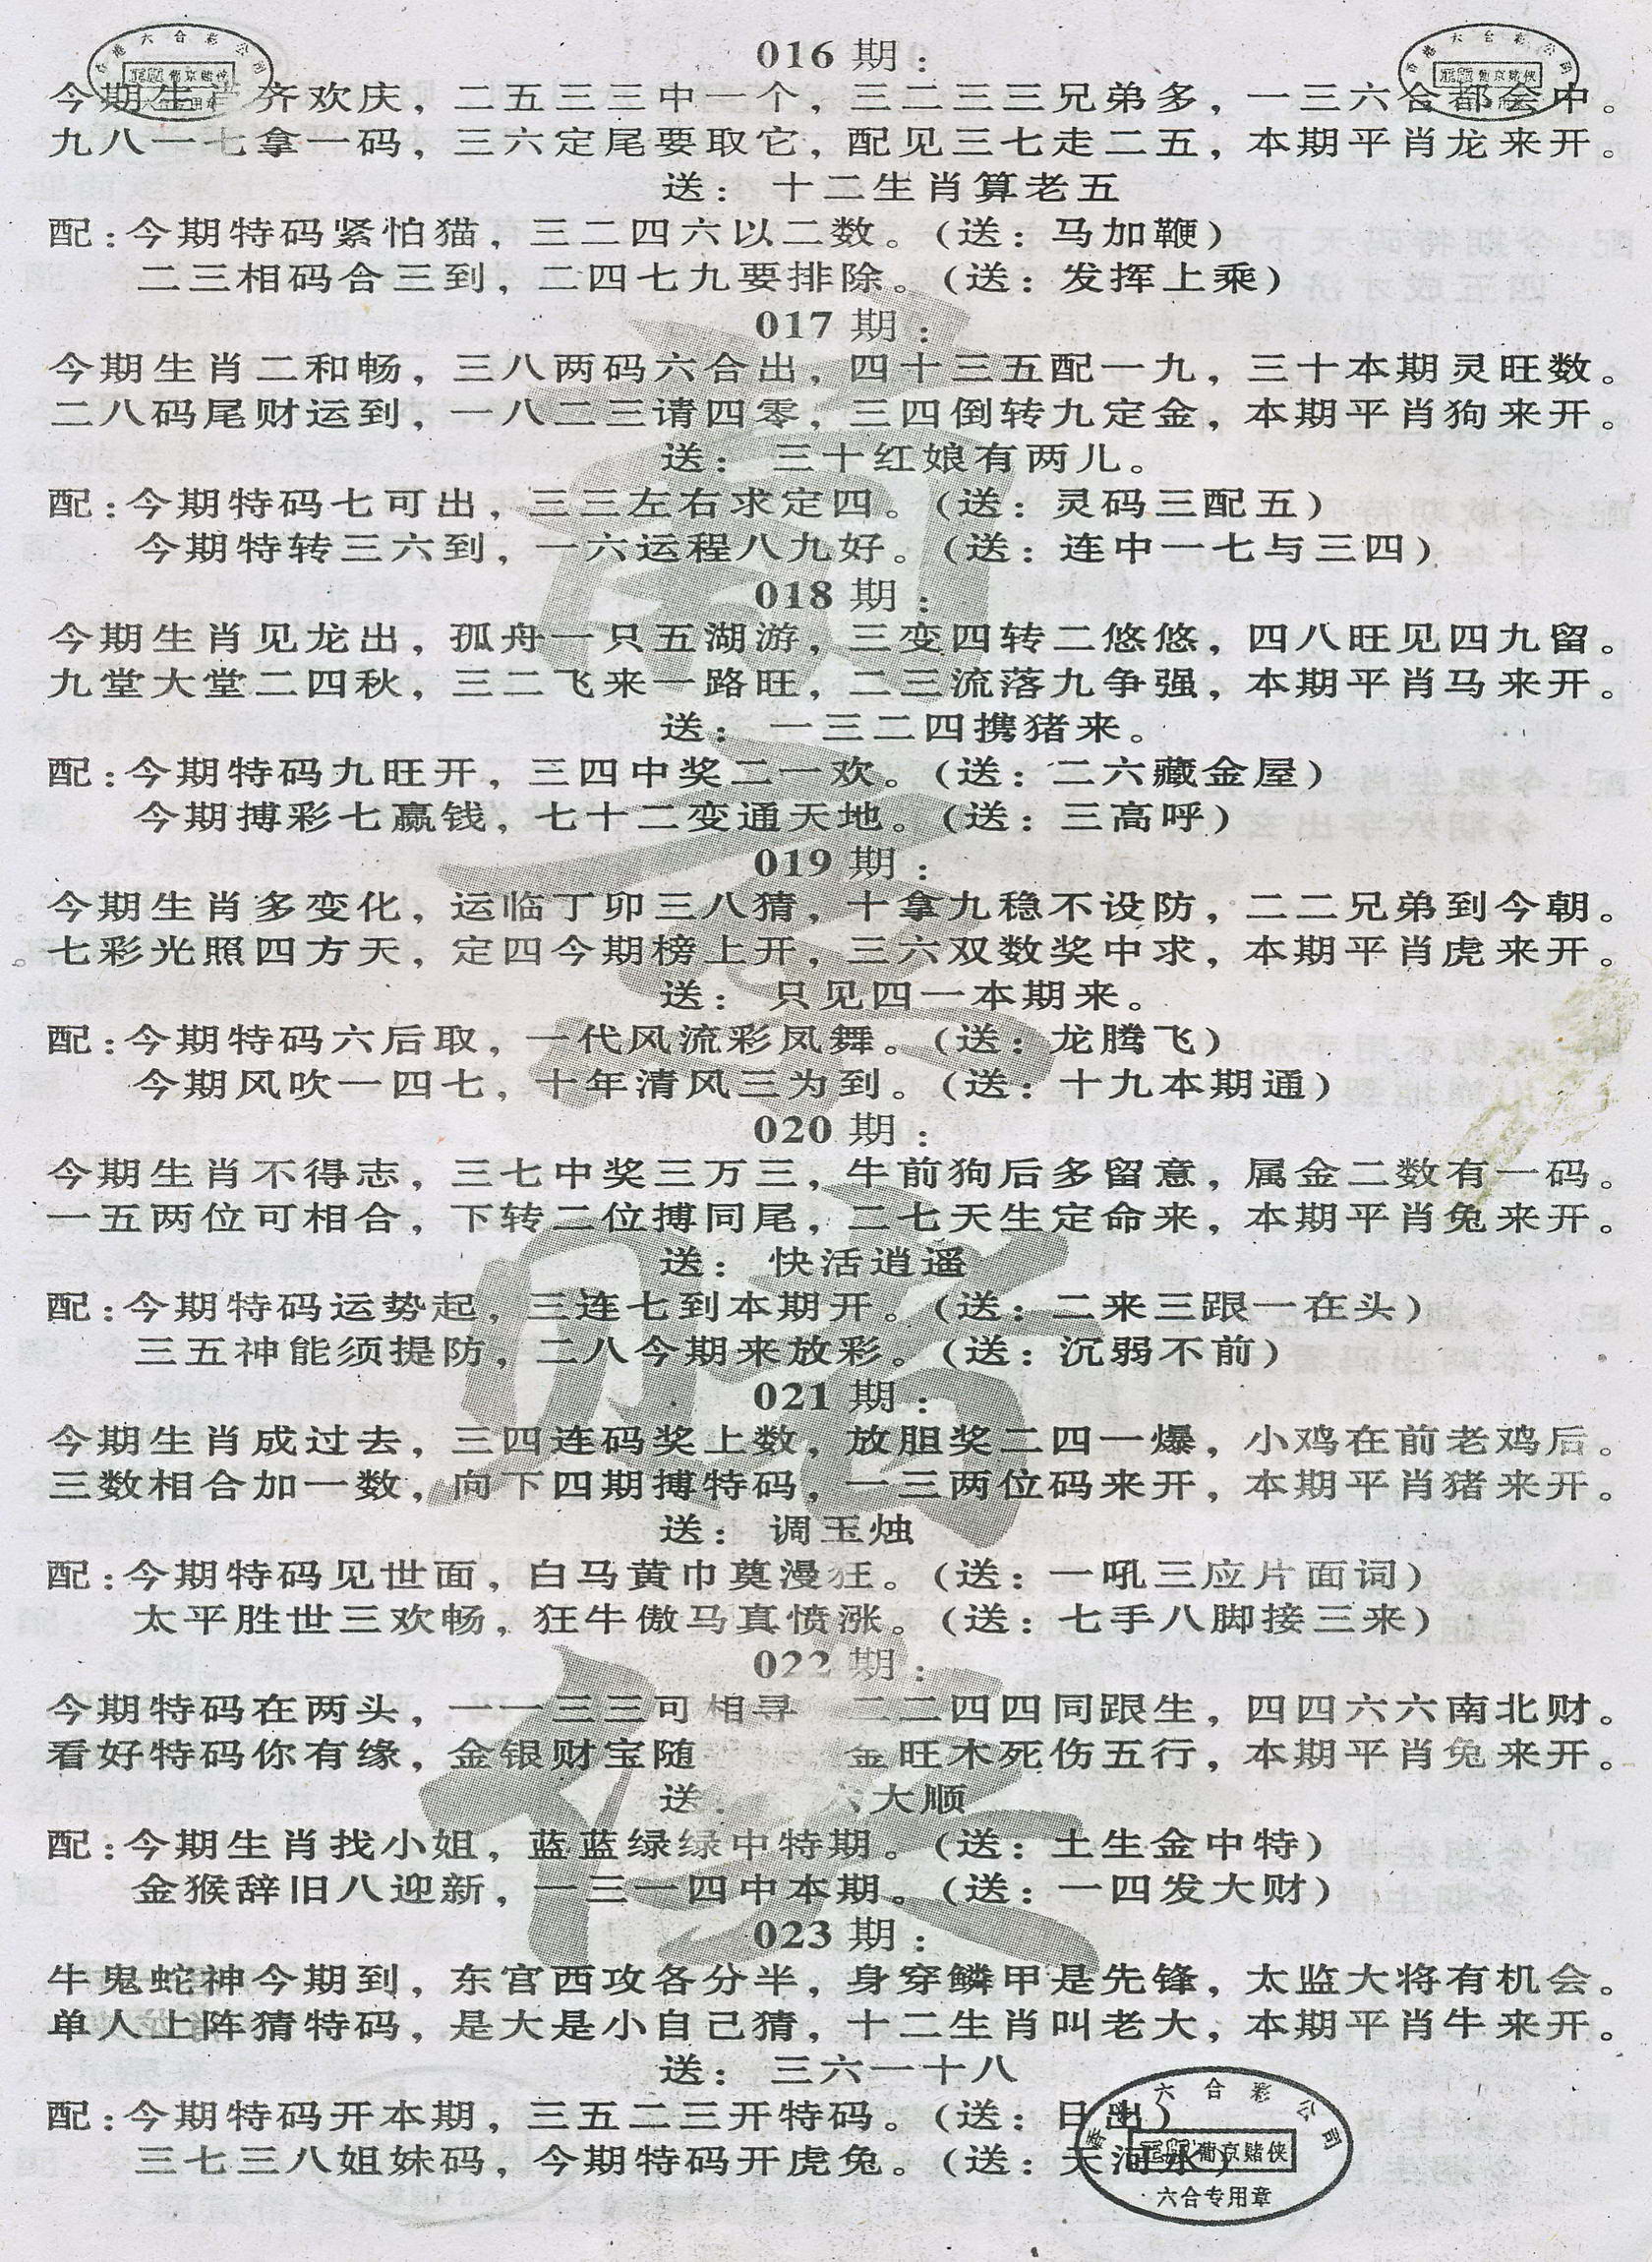 016 期：
今期生肖齐欢庆，二五三三中一个，三二三三兄弟多，一三六合都会中。
九八一七拿一码，三六定尾要取它，配见三七走二五，本期平肖龙来开。
送： 十二生肖算老五
配：今期特码紧怕猫，三二四六以二数。（送：马加鞭）
二三相码合三到，二四七九要排除。（送：发挥上乘）
017 期：
今期生肖二和畅，三八两码六合出，四十三五配一九，三十本期灵旺数。
二八码尾财运到，一八二三请四零，三四倒转九定金，本期平肖狗来开。
送： 三十红娘有两儿。
配：今期特码七可出，三三左右求定四。（送：灵码三配五）
今期特转三六到，一六运程八九好。（送：连中一七与三四）
018 期：
今期生肖见龙出，孤舟一只五湖游，三变四转二悠悠，四八旺见四九留。
九堂大堂二四秋，三二飞来一路旺，二三流落九争强，本期平肖马来开。
送： 一三二四携猪来。
配：今期特码九旺开，三四中奖二一欢。（送：二六藏金屋）
今期搏彩七赢钱，七十二变通天地。（送：三高呼）
019 期：
今期生肖多变化，运临丁卯三八猜，十拿九稳不设防，二二兄弟到今朝。
七彩光照四方天，定四今期榜上开，三六双数奖中求，本期平肖虎来开。
送： 只见四一本期来。
配：今期特码六后取，一代风流彩凤舞。（送：龙腾飞）
今期风吹一四七，十年清风三为到。（送：十九本期通）
020 期：
今期生肖不得志，三七中奖三万三，牛前狗后多留意，属金二数有一码。
一五两位可相合，下转二位搏同尾，二七天生定命来，本期平肖兔来开。
送： 快活逍遥
配：今期特码运势起，三连七到本期开。（送：二来三跟一在头）
三五神能须提防，二八今期来放彩。（送：沉弱不前）
021 期：
今期生肖成过去，三四连码奖上数，放胆奖二四一爆，小鸡在前老鸡后。
三数相合加一数，向下四期搏特码，一三两位码来开，本期平肖猪来开。
送： 调玉烛
配：今期特码见世面，白马黄巾莫漫狂。（送：一吼三应片面词）
太平胜世三欢畅，狂牛傲马真愤涨。（送：七手八脚接三来）
022 期：
今期特码在两头，一一三三可相寻 二二四四同跟生，四四六六南北财。
看好特码你有缘，金银财宝随 金旺木死伤五行，本期平肖兔来开。
送 六大顺
配：今期生肖找小姐，蓝蓝绿绿中特期。（送：土生金中特）
金猴辞旧八迎新，一三一四中本期。（送：一四发大财）
023 期：
牛鬼蛇神今期到，东宫西攻各分半，身穿鳞甲是先锋，太监大将有机会。
单人上阵猜特码，是大是小自己猜，十二生肖叫老大，本期平肖牛来开。
送： 三六一十八
配：今期特码开本期，三五二三开特码。（送：日出）
三七三八姐妹码，今期特码开虎兔。（送：天河水）
香港六合彩公司
葡京赌侠
六合专用章